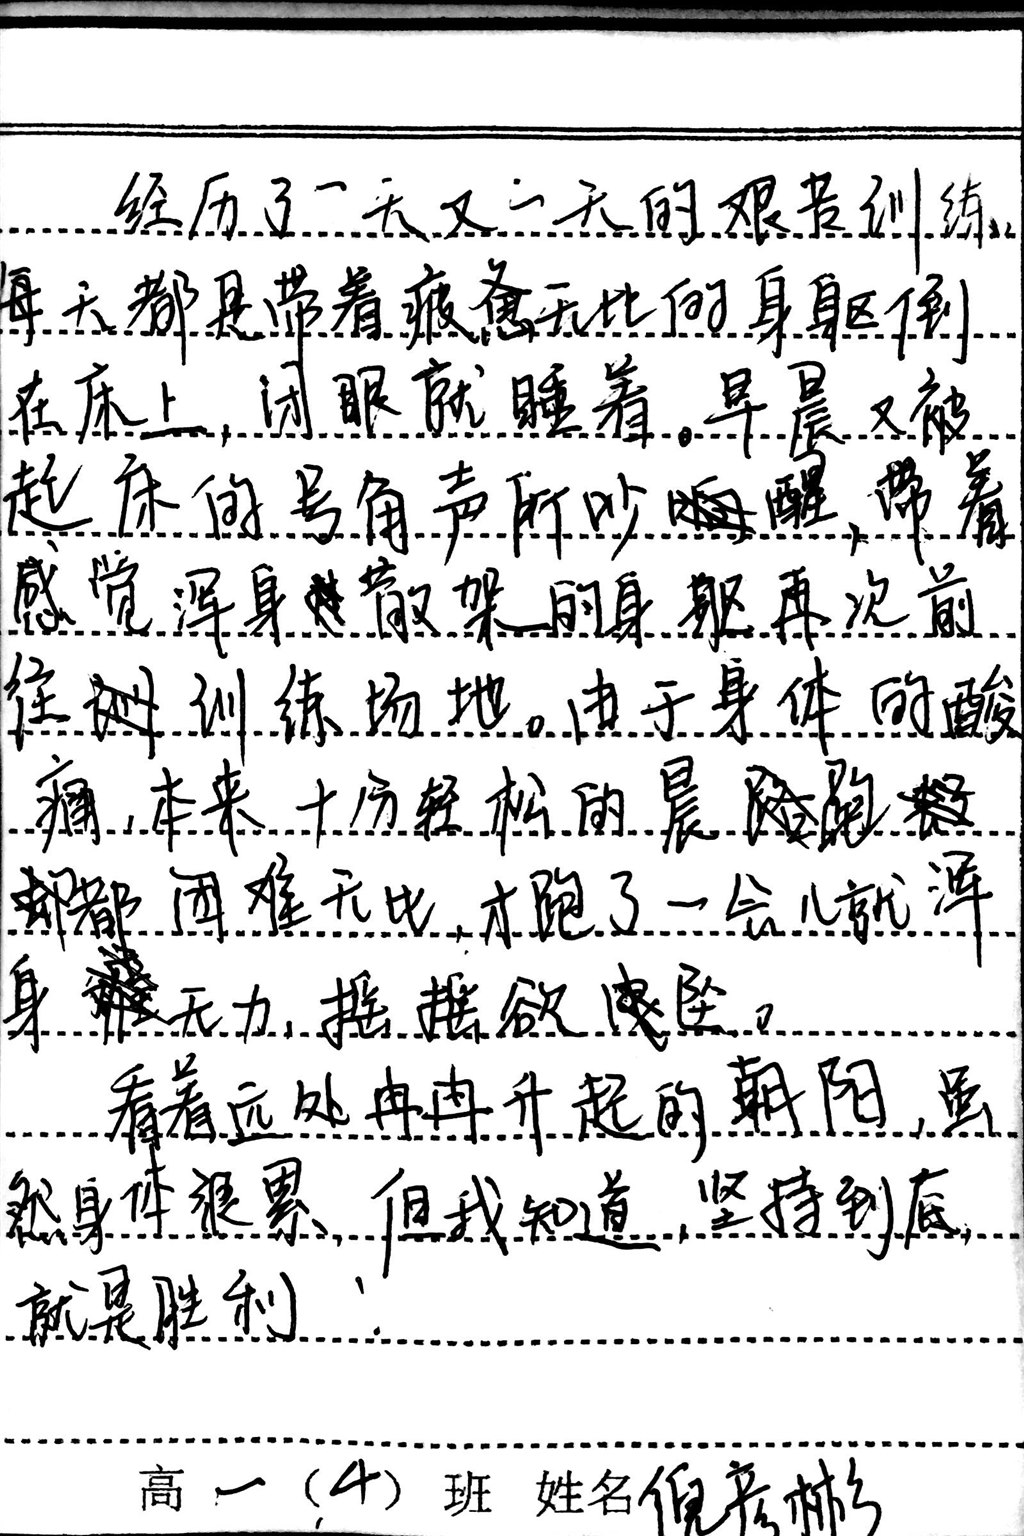 经历了一天又一天的艰苦训练，
每天都是带着疲惫无比的身躯倒
在床上，闭眼就睡着。早晨又被
起床的号角声所吵醒，带着
感觉浑身散架的身躯再次前
往训练场地。由于身体的酸
痛，本来十分轻松的晨跑
都困难无比，才跑了一会儿就浑
身无力，摇摇欲坠。
看着远处冉冉升起的朝阳，虽
然身体很累，但我知道，坚持到底，
就是胜利！
高一（4）班 姓名倪彦彬